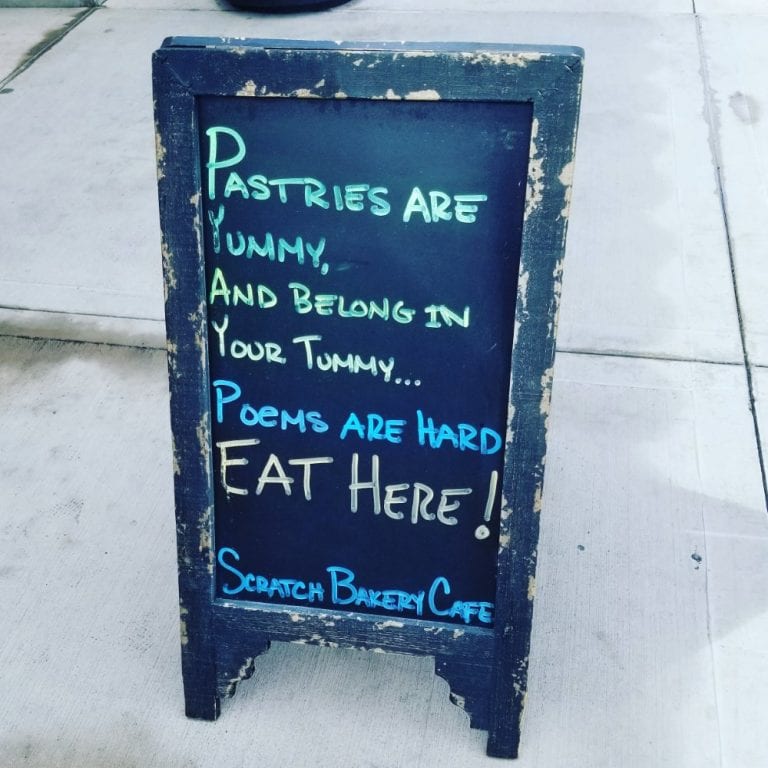 Pastries are
Yummy,
And belong in
Your Tummy...
Poems are hard
Eat Here!
Scratch Bakery Cafe